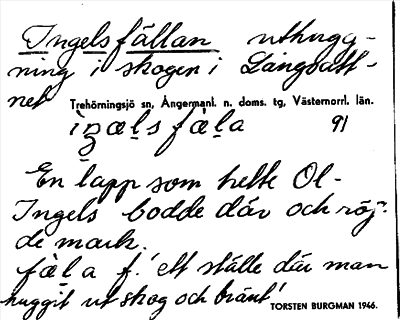 Ingelsfällan uthugg-
ning i skogen i Långvatt-
net
Trehörningsjö sn, Ångermanl. n. doms. tg, Västernorrl. län.
91
En lapp som hette Ol-
Ingels bodde där och röj-
de mark.
fä̀la f. 'ett ställe där man
huggit ut skog och bränt'
TORSTEN BURGMAN 1946.